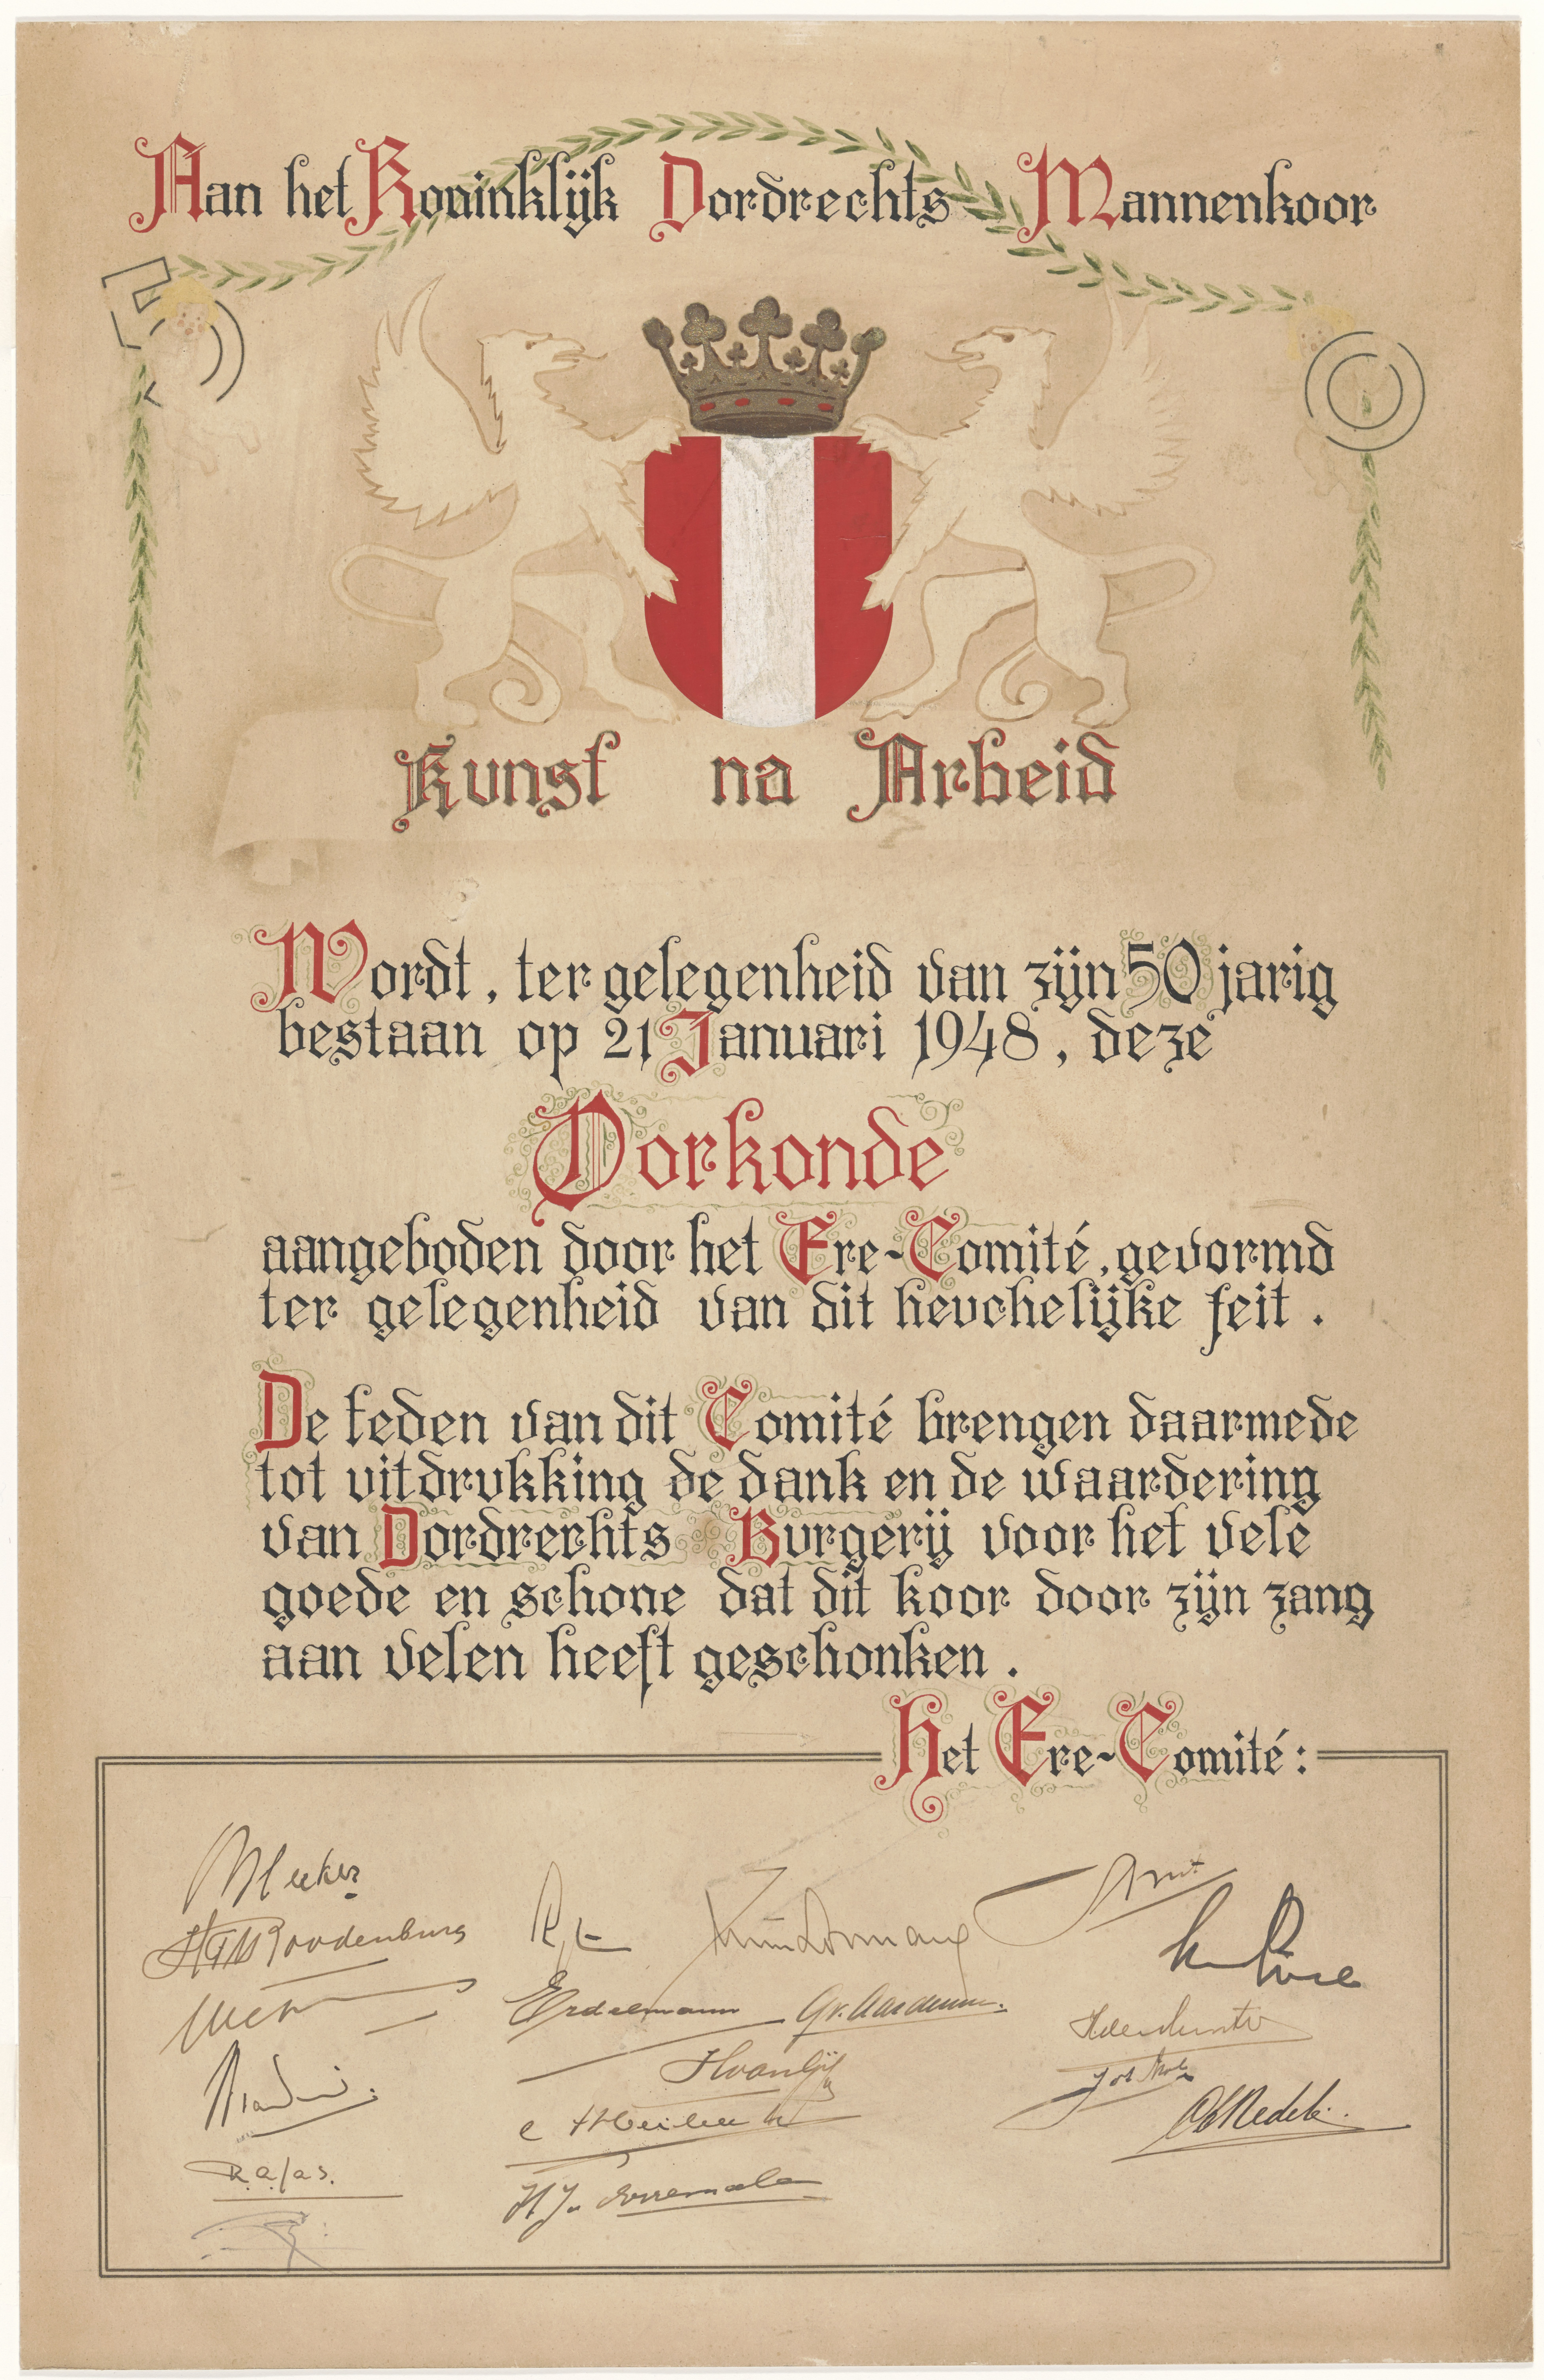 Aan het Koninklijk Dordrechts Mannenkoor
50
Kunst na Arbeid
Wordt, ter gelegenheid van zijn 50 jarig
bestaan op 21 Januari 1948, deze
Oorkonde
aangeboden door het Ere-Comité, gevormd
ter gelegenheid van dit heuchelijke feit.
De leden van dit Comité brengen daarmede
tot uitdrukking de dank en de waardering
van Dordrechts Burgerij voor het vele
goede en schone dat dit koor door zijn zang
aan velen heeft geschonken.
Het Ere-Comité:
Bleeker
Roodenburg
Erdelmann